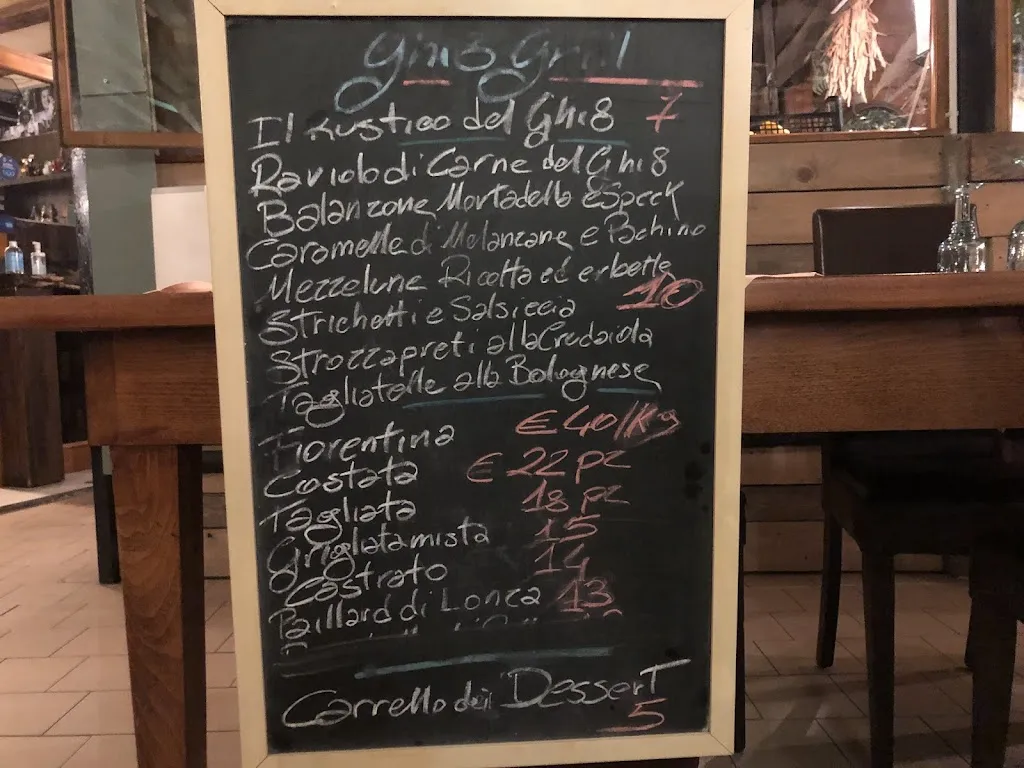 Ghi8 Grill
Il Rustico del Ghi8 7
Raviolo di Carne del Ghi8
Balanzone Mortadella e Speck
Caramelle di Melanzane e Pachino
Mezzelune Ricotta ed erbette
Strichetti e Salsiccia 10
Strozzapreti alla Crudaiola
Tagliatelle alla Bolognese
Fiorentina € 40/Kg
Costata € 22 pz
Tagliata 18 pz
Grigliata mista 15
Castrato 14
Paillard di Lonza 13
Carrello dei Dessert
5